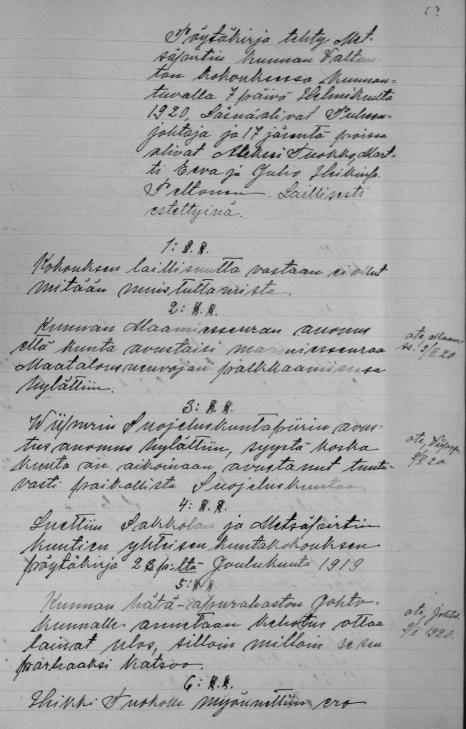 Pöytäkirja tehty Met-
säpirtin kunnan Valtuus-
ton kokouksessa kunnan-
tuvalla 7 päivä Helmikuuta
1920, Läsnäolivat Puheen-
johtaja ja 17 jäsentä poissa
olivat Aleksi Tuokko, Mart-
ti Eeva ja Juho Heikinp.
Peltonen. Laillisesti
estettyinä.
1: §.
Kokouksen laillisuutta vastaan ei ollut
mitään muistuttamista.
2: §.
Kunnan Maamiesseuran anomus
että kunta avustaisi maamiesseuraa
Maatalousneuvojan palkkaamisessa
hylättiin.
ote, Maam
3: §.
Wiipurin Suojeluskuntapiirin avus-
tus anomus hylättiin, syystä koska
kunta on aikoinaan avustanut tunte-
vasti paikallista Suojeluskuntaa.
ote, Viipurp.
9/II 20
4: §.
Luettiin Sakkolan ja Metsäpirtin
kuntien yhteisen kuntakokouksen
pöytäkirja 28 p:ltä Joulukuuta 1919
5: §
Kunnan hätä-apurahaston Johto-
kunnalle annetaan kehotus ottaa
lainat ulos, silloin milloin se sen
parhaaksi katsoo.
ote, Johtok
9/II 1920.
6: §.
Heikki Tuokolle myönnettiin ero